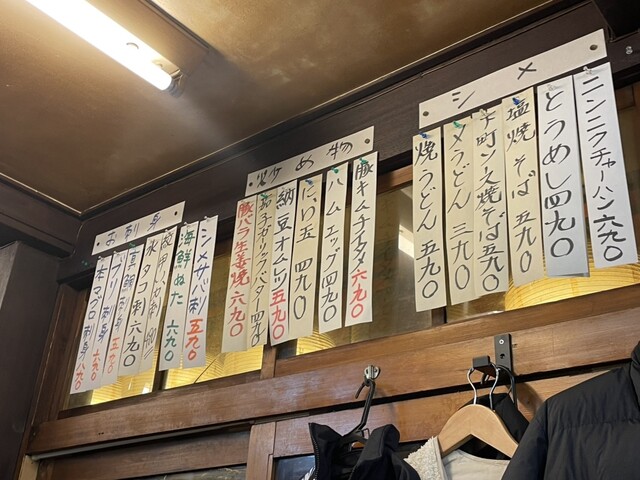 シメ
ニンニクチャーハン 六九〇
とうめし 四九〇
塩焼そば 五九〇
焼そば 五九〇
〆うどん 三九〇
焼うどん 五九〇
炒め物
豚キムチイタメ 六九〇
ハムエッグ 四九〇
にら玉 四九〇
納豆オムレツ 五九〇
茄子ガーリックバター 四九〇
豚バラ生姜焼 六九〇
お刺身
シメサバ刺 五九〇
海鮮ぬた 六九〇
水タコ刺 六九〇
ブリ刺身
本マグロ刺身 八九〇